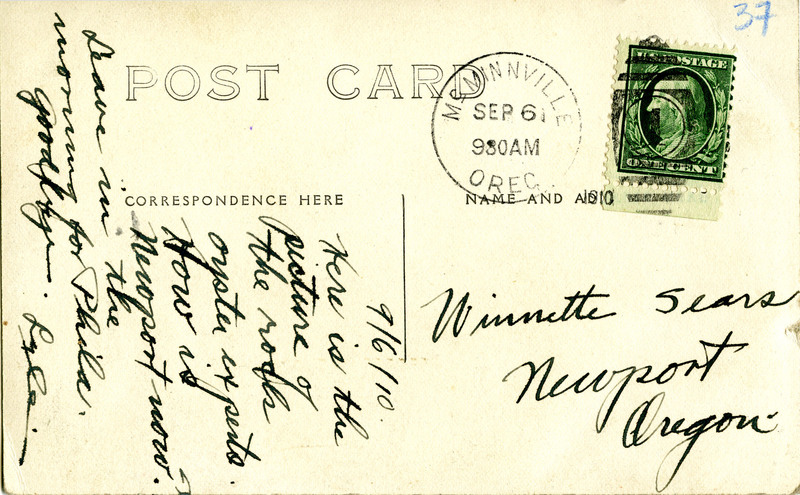 37
POST CARD
McMINNVILLE
SEP 6
930AM
OREG.
1910
U.S. POSTAGE
ONE CENT
CORRESPONDENCE HERE
NAME AND AD
9/6/10.
Here is the
picture of
the rock
oyster experts.
How is
Newport now.
Leave in the
morning for Phila.
Goodbye.
Winnette Sears
Newport
Oregon.